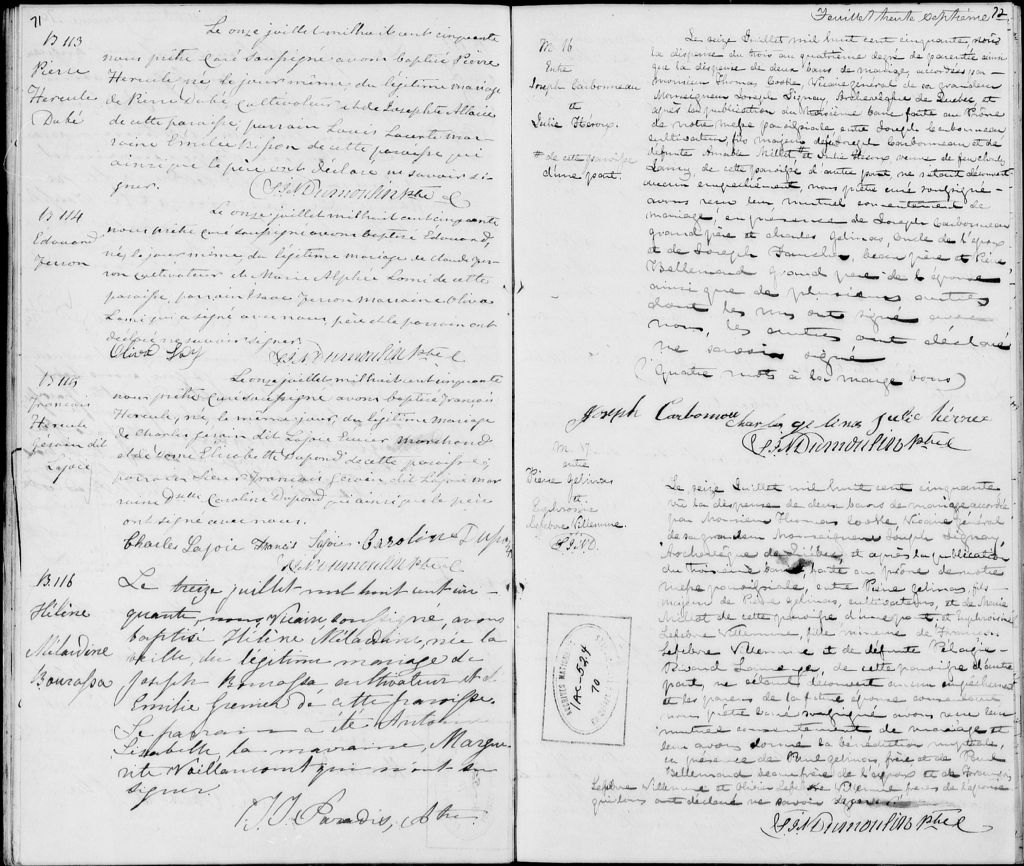 71
B 113
Pierre
Hercule
Dubé
Le onze juillet mil huit cent cinquante
nous prêtre Curé soussigné avons baptisé Pierre
Hercule né le jour même du légitime mariage
de Pierre Dubé Cultivateur et de Josephte Allaire
de cette paroisse, parrain Louis Lacerte mar-
raine Émilie Bisson de cette paroisse qui
ainsi que le père ont déclaré ne savoir si-
gner.
S. N. Dumoulin Ptre C
B 114
Edouard
Ferron
Le onze juillet mil huit cent cinquante
nous prêtre Curé soussigné avons baptisé Edouard,
né le jour même du légitime mariage de Claude Fer-
ron Cultivateur et Marie Alphée Lami de cette
paroisse, parrain Isaac Ferron marraine Olive
Lami qui a signé avec nous, père et le parrain ont
déclaré ne savoir signer.
S. N. Dumoulin Ptre C
B 115
François
Hercule
Gervais dit
Lajoie
Le onze juillet mil huit cent cinquante
nous prêtre Curé soussigné avons baptisé François
Hercule, né, le même jour, du légitime mariage
de Charles Gervais dit Lajoie Ecuier marchand
et de Dame Elizabeth Dupond de cette paroisse,
parrain Sieur François Gervais dit Lajoie mar-
raine Dlle Caroline Dupond qui ainsi que le père
ont signé avec nous.
Charles Lajoie Francis Lajoie Caroline Dupont
S. N. Dumoulin Ptre C
B 116
Hélène
Mélandine
Bourassa
Le treize juillet mil huit cent cin-
quante, Vicaire soussigné, avons
baptisé Hélène Mélandine, née la
veille, du légitime mariage de
Joseph Bourassa cultivateur et d'
Emilie Grenier de cette paroisse.
Le parrain a été Antoine
Lizabelle, la marraine, Margue-
rite Vaillancourt qui n'ont su
signer
J. J. Paradis, Ptre
Feuillet trente septième 72
M 16
Entre
Joseph Carbonneau
et
Julie Héroux.
# de cette paroisse
d'une part.
Le seize Juillet mil huit cent cinquante, vu
la dispense du trois au quatrième degré de parenté ainsi
que la dispense de deux bans de mariage, accordées par
Monsieur Thomas Cooke, Vicaire général de sa grandeur
Monseigneur Joseph Signay, Archevêque de Québec et
après la publication du troisième ban faite au Prône
de notre messe paroissiale entre Joseph Carbonneau
cultivateur, fils majeur de Joseph Carbonneau et de
défunte Amable Millet # et Julie Héroux veuve de feu Charles
Lamy, de cette paroisse d'autre part, ne s'étant découvert
aucun empêchement, nous prêtre curé soussigné
avons reçu leur mutuel consentement de
mariage, en présence de Joseph Carbonneau
grand père et Charles Gélinas, oncle de l'époux
et de Joseph beau père et Pierre
Bellemand grand père de l'épouse
ainsi que de plusieurs autres
dont les uns ont signé avec
nous, les autres ont déclaré
ne savoir signé
(Quatre mots à la marge bons)
Joseph Carbonnou Charles gelinas Julie hérrux
S. N. Dumoulin Ptre C
M. 17
entre
Pierre Gélinas
et
Euphrosine
Lefebvre Villemure.
S. N. D.
Le seize Juillet mil huit cent cinquante
vu la dispense de deux bans de mariage accordée
par Monsieur Thomas Cooke Vicaire Général
de sa grandeur Monseigneur Joseph Signay,
Archevêque de Québec, et après la publication
du troisième ban, faite au prône de notre
messe paroissiale, entre Pierre Gélinas, fils
majeur de Pierre Gélinas, cultivateur, et de Marie
Millot de cette paroisse d'une part, et Euphrosine
Lefebvre Villemure, fille mineure de François
Lefebvre Villemure et de défunte Pélagie
de cette paroisse d'autre
part, ne s'étant découvert aucun empêchement
et les parens de la future épouse consentans
nous prêtre Curé soussigné avons reçu leur
mutuel consentement de mariage et
leur avons donné la bénédiction nuptiale,
en présence de Paul Gélinas, frère et de Paul
Bellemand beau frère de l'époux et de François
Lefebvre Villemure et Olivier Lefebvre Villemure frères de l'épouse
qui tous ont déclaré ne savoir signer.
S. N. Dumoulin Ptre C
ARCHIVES NATIONALES
IAC-5524
70